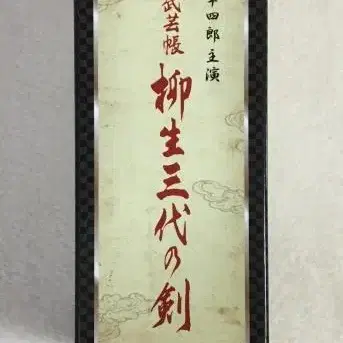 十四郎主演
武芸帳
柳生三代の剣